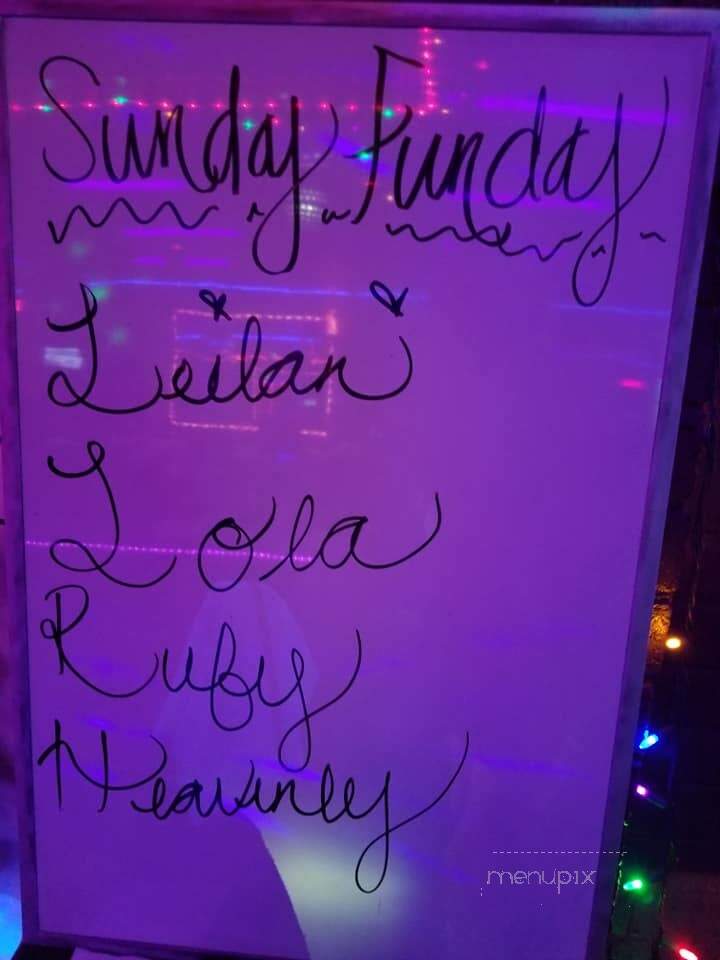 Sunday Funday
Leilani
Lola
Ruby
Heavenley
menupix